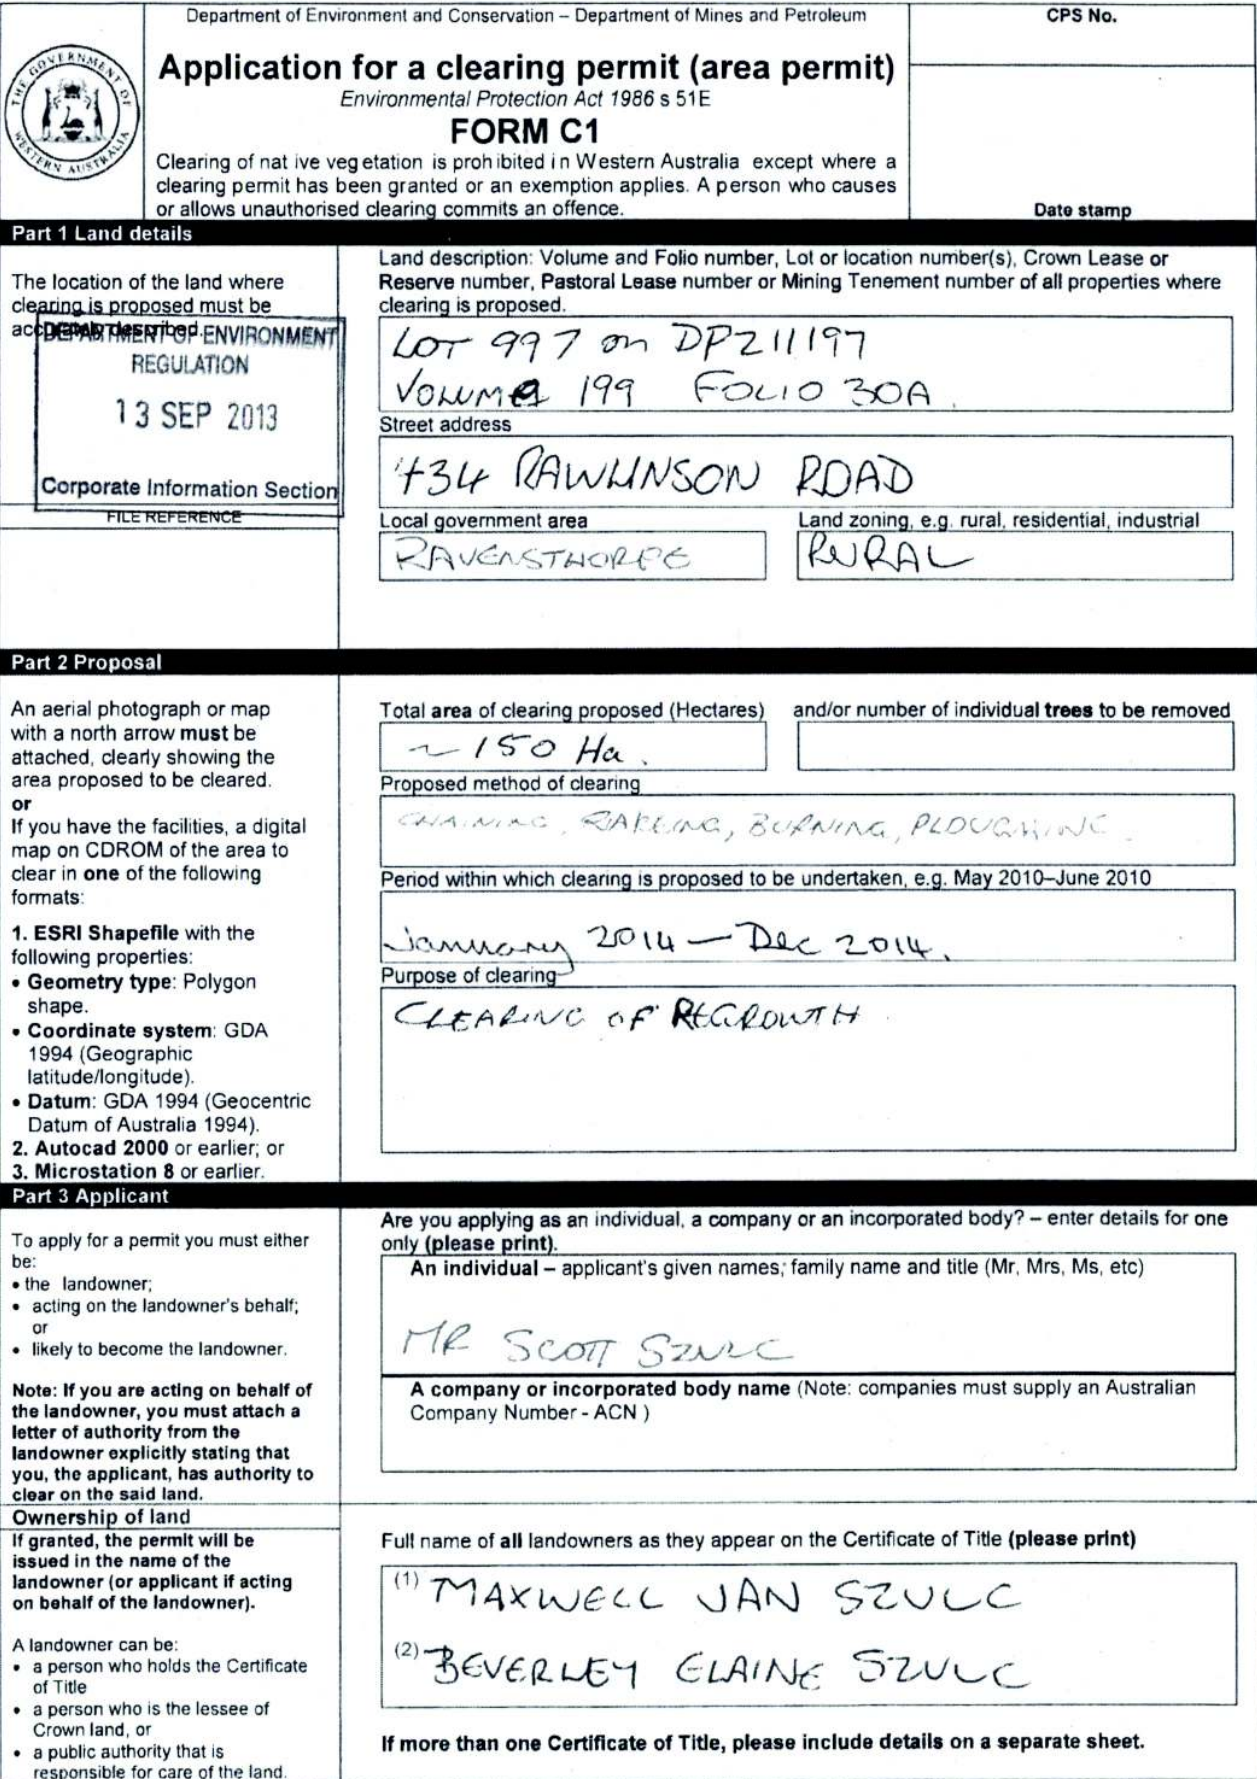 Department of Environment and Conservation – Department of Mines and Petroleum
CPS No.
THE GOVERNMENT OF WESTERN AUSTRALIA
Application for a clearing permit (area permit)
Environmental Protection Act 1986 s 51E
FORM C1
Clearing of nat ive veg etation is proh ibited i n Western Australia except where a
clearing permit has been granted or an exemption applies. A person who causes
or allows unauthorised clearing commits an offence.
Date stamp
Part 1 Land details
The location of the land where
clearing is proposed must be
accurately described.
DEPARTMENT OF ENVIRONMENT
REGULATION
13 SEP 2013
Corporate Information Section
FILE REFERENCE
Land description: Volume and Folio number, Lot or location number(s), Crown Lease or
Reserve number, Pastoral Lease number or Mining Tenement number of all properties where
clearing is proposed.
LOT 997 on DP211197
VOLUME 199 FOLIO 30A.
Street address
434 RAWLINSON ROAD
Local government area
RAVENSTHORPE
Land zoning, e.g. rural, residential, industrial
RURAL
Part 2 Proposal
An aerial photograph or map
with a north arrow must be
attached, clearly showing the
area proposed to be cleared.
or
If you have the facilities, a digital
map on CDROM of the area to
clear in one of the following
formats:
1. ESRI Shapefile with the
following properties:
• Geometry type: Polygon
shape.
• Coordinate system: GDA
1994 (Geographic
latitude/longitude).
• Datum: GDA 1994 (Geocentric
Datum of Australia 1994).
2. Autocad 2000 or earlier; or
3. Microstation 8 or earlier.
Total area of clearing proposed (Hectares)
~ 150 Ha.
and/or number of individual trees to be removed
Proposed method of clearing
CHAINING, RAKEING, BURNING, PLOUGHING.
Period within which clearing is proposed to be undertaken, e.g. May 2010–June 2010
January 2014 – Dec 2014.
Purpose of clearing
CLEARING OF REGROWTH
Part 3 Applicant
To apply for a permit you must either
be:
• the landowner;
• acting on the landowner's behalf;
or
• likely to become the landowner.
Note: If you are acting on behalf of
the landowner, you must attach a
letter of authority from the
landowner explicitly stating that
you, the applicant, has authority to
clear on the said land.
Are you applying as an individual, a company or an incorporated body? – enter details for one
only (please print).
An individual – applicant's given names; family name and title (Mr, Mrs, Ms, etc)
MR SCOTT SZULC
A company or incorporated body name (Note: companies must supply an Australian
Company Number - ACN )
Ownership of land
If granted, the permit will be
issued in the name of the
landowner (or applicant if acting
on behalf of the landowner).
A landowner can be:
• a person who holds the Certificate
of Title
• a person who is the lessee of
Crown land, or
• a public authority that is
responsible for care of the land.
Full name of all landowners as they appear on the Certificate of Title (please print)
(1) MAXWELL JAN SZULC
(2) BEVERLEY ELAINE SZULC
If more than one Certificate of Title, please include details on a separate sheet.